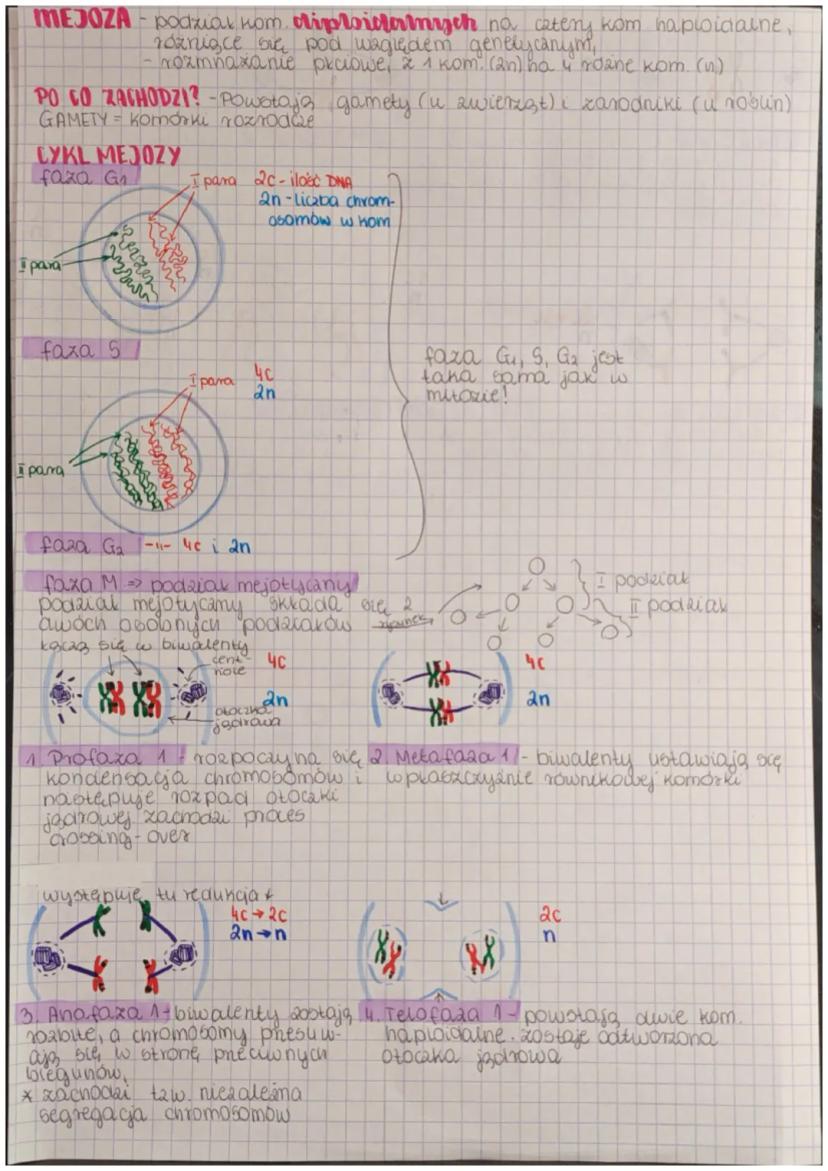 MEJOZA - podział kom. diploidalnych na cztery kom haploidalne,
różniące się pod względem genetycznym,
- rozmnażanie płciowe, z 1 kom. (2n) na 4 różne kom. (n)
PO CO ZACHODZI? - Powstają gamety (u zwierząt) i zarodniki (u roślin)
GAMETY = komórki rozrodcze
CYKL MEJOZY
faza G1
I para
2c - ilość DNA
2n - liczba chrom-
osomów w kom
II para
faza S
I para
4c
2n
II para
faza G1, S, G2 jest
taka sama jak w
mitozie!
faza G2 -11- 4c i 2n
faza M => podział mejotyczny
podział mejotyczny składa się z
dwóch osobnych podziałów
rysunek
I podział
II podział
łączą się w biwalenty
cent-
riole
4c
2n
otoczka
jądrowa
4c
2n
1. Profaza 1 - rozpoczyna się
kondensacja chromosomów i
następuje rozpad otoczki
jądrowej zachodzi proces
crossing-over
2. Metafaza 1 - biwalenty ustawiają się
w płaszczyźnie równikowej komórki
występuje tu redukcja *
4c → 2c
2n → n
2c
n
3. Anafaza 1 - biwalenty zostają
rozbite, a chromosomy przesuw-
ają się w stronę przeciwnych
biegunów,
* zachodzi tzw. niezależna
segregacja chromosomów
4. Telofaza 1 - powstają dwie kom.
haploidalne. zostaje odtworzona
otoczka jądrowa